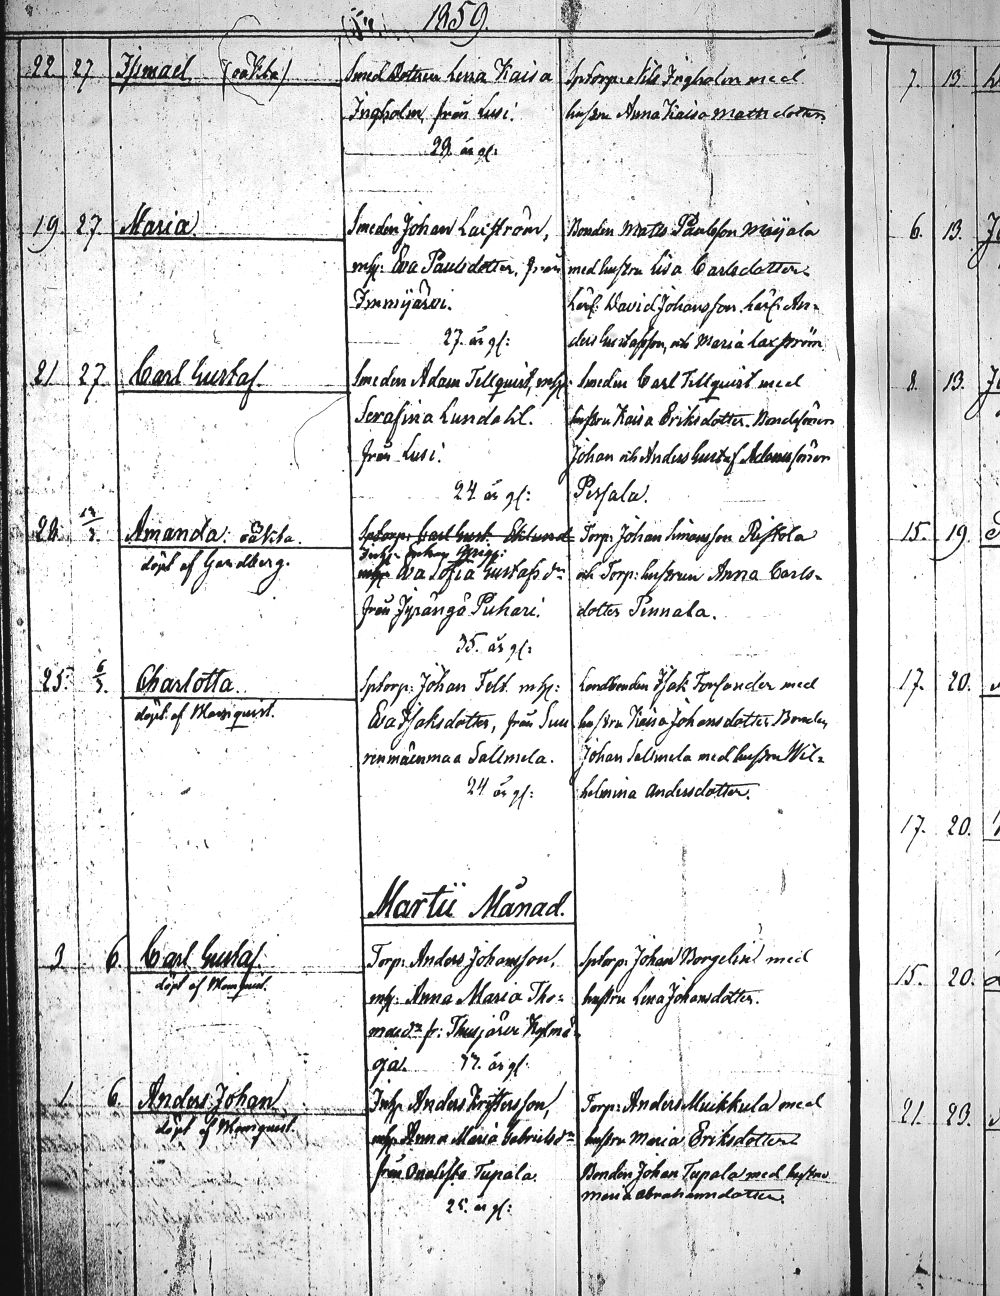 1859.
22 27 Ismael (oäkta) Smed Dottren Lena Kaisa
Ingholm, från Lusi.
29 år gl:
hustru Anna Kaisa Matts dotter.
19. 27. Maria. Smeden Johan Laxström,
mh: Eva Paulsdotter, från
Immijärvi.
27 år gl:
Bonden Matts Paulsson Maijala
med hustru Lisa Carlsdotter.
David Johansson An-
ders Gustafsson, och Maria Laxström
21 27 Carl Gustaf. Smeden Adam Tellquist, mh:
Serafina Lundahl.
från Lusi.
24 år gl:
Smeden Carl Tellquist med
hustru Kaisa Eriksdotter. Bondesönen
Johan och Anders Gustaf Adamssöner
Perjala.
28. Amanda. oäkta.
döpt af Gardberg.
Sptorp: Carl Gust. Eklund
Eva Sofia Gustafs dr
från Jyrängö Puhari.
35. år gl:
Torp: Johan Simonsson Ristola
och Torp: hustrun Anna Carls-
dotter Pinnala.
25. 6/3. Charlotta.
döpt af Monquist.
Sptorp: Johan Felt mh:
Eva Isaksdotter, från Suu
renmäenmaa Sallmela.
24 år gl:
Landbonden Isak Forsander med
hustru Kaisa Johansdotter Bonden
Johan Sallmela med hustru Wil-
helmina Andersdotter.
Martii Månad.
3 6 Carl Gustaf.
döpt af Monquist.
Torp: Anders Johansson,
mh: Anna Maria Tho-
masdr fr:
oja. år gl:
Sptorp: Johan Borgelin med
hustru Lena Johansdotter.
1 6 Anders Johan
döpt af Monquist.
Inh: Anders
mh: Anna Maria Gabrielsdr
från Onalista Tupala.
25. år gl:
Torp: Anders Muikkula med
hustru Maria Eriksdotter
Bonden Johan Tupala med hustru
Maria Abrahamsdotter.
7. 13.
6. 13.
8. 13.
15. 19.
17. 20.
17. 20.
15. 20.
21. 23.